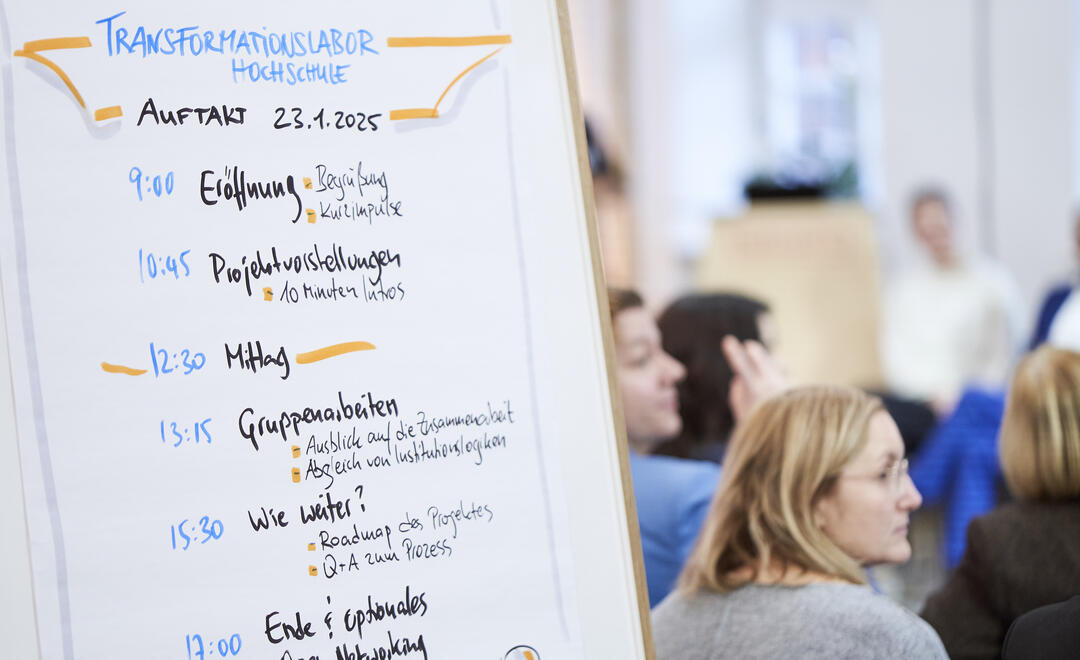 TRANSFORMATIONSLABOR
HOCHSCHULE
AUFTAKT 23.1.2025
9:00 Eröffnung - Begrüßung
- Kurzimpulse
10:45 Projektvorstellungen
- 10 Minuten Intros
12:30 Mittag
13:15 Gruppenarbeiten
- Ausblick auf die Zusammenarbeit
- Abgleich von Institutionslogiken
15:30 Wie weiter?
- Roadmap des Projektes
- Q+A zum Prozess
17:00 Ende & optionales
Networking